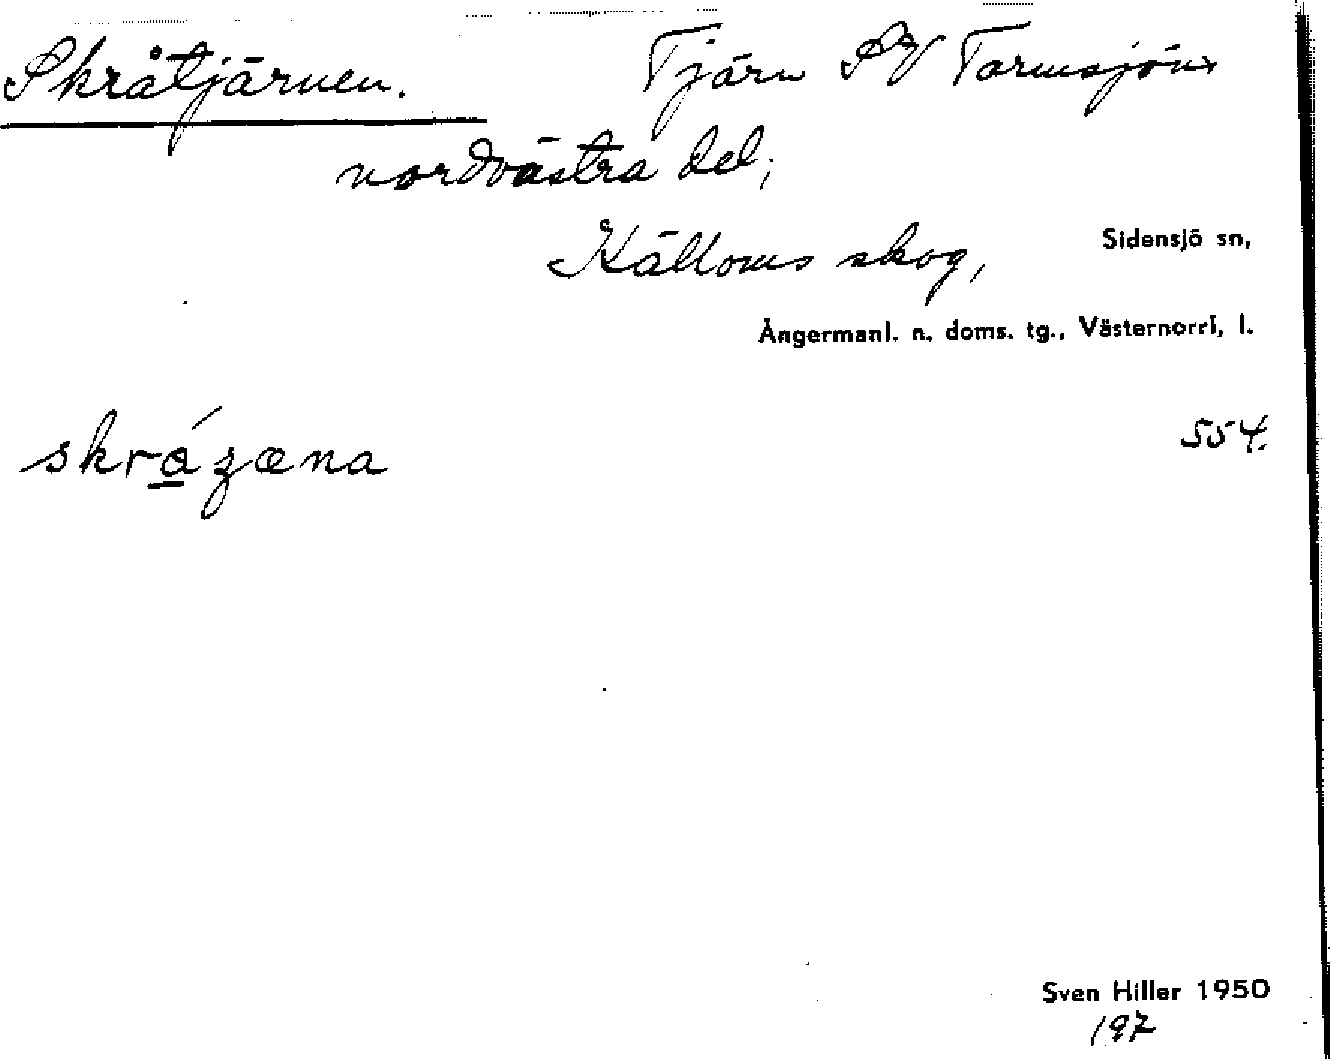 Skråtjärnen. Tjärn SV Tarmsjöns
nordvästra del;
Källoms skog, Sidensjö sn,
Ångermanl. n. doms. tg., Västernorrl, l.
skrázæna 554.
Sven Hiller 1950
197